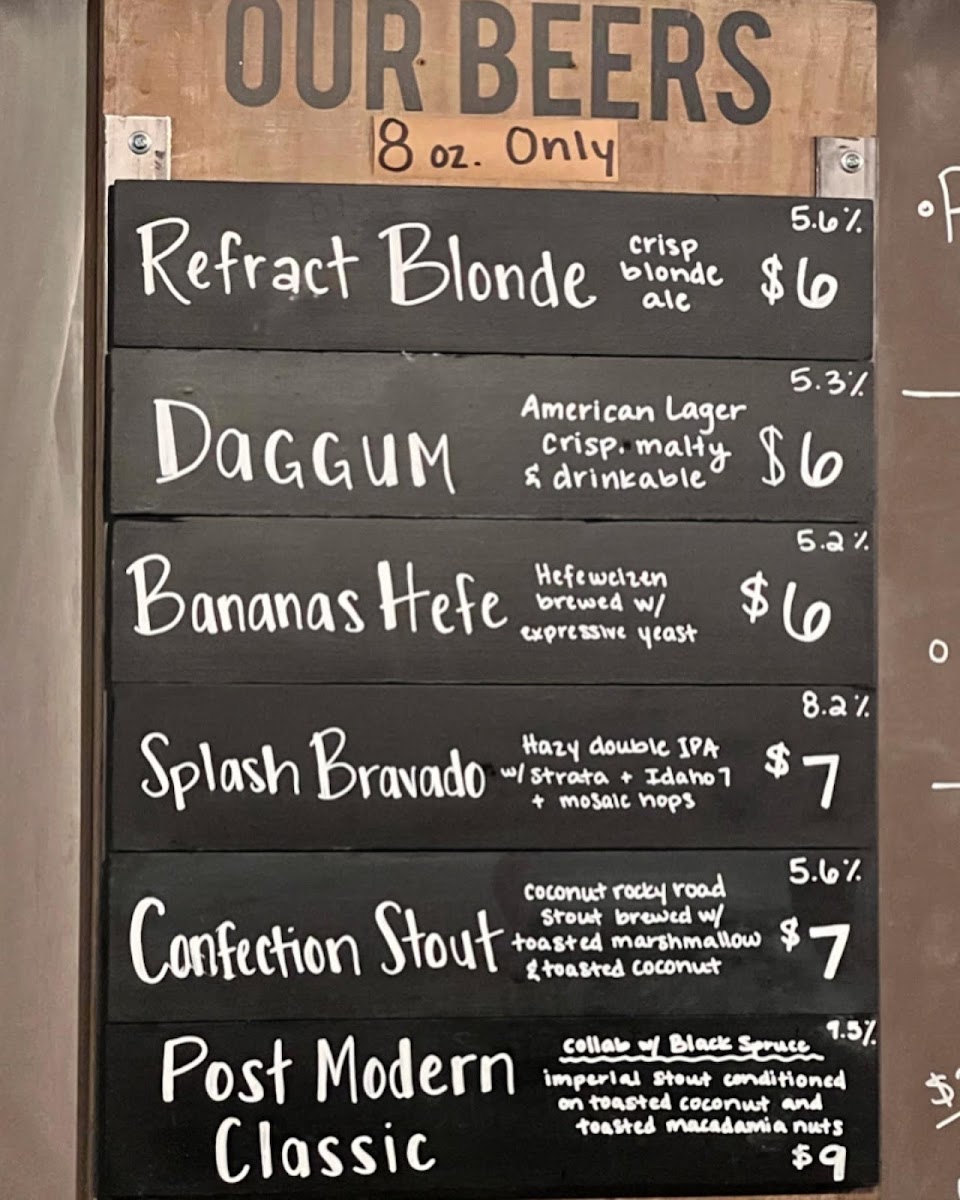 OUR BEERS
8 oz. Only
5.6%
Refract Blonde
crisp
blonde
ale
$6
5.3%
DaGGUM
American Lager
crisp. malty
& drinkable
$6
5.2%
Bananas Hefe
Hefeweizen
brewed w/
expressive yeast
$6
8.2%
Splash Bravado
Hazy double IPA
w/ Strata + Idaho 7
+ mosaic hops
$7
5.6%
Confection Stout
coconut rocky road
Stout brewed w/
toasted marshmallow
& toasted coconut
$7
9.5%
Post Modern
Classic
collab w/ Black Spruce
imperial Stout conditioned
on toasted coconut and
toasted macadamia nuts
$9